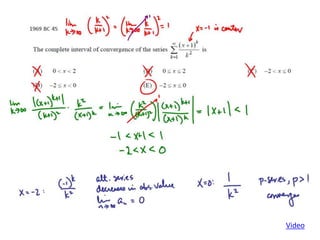 1969 BC 45 lim k→∞ (k/(k+1))² = (lim k→∞ k/(k+1))² = 1 x=-1 is center
The complete interval of convergence of the series ∑ k=1 ∞ (x+1)^k / k² is
0 < x < 2 0 ≤ x ≤ 2 −2 < x ≤ 0
−2 ≤ x < 0 (E) −2 ≤ x ≤ 0
lim k→∞ |(x+1)^(k+1)| / (k+1)² · k² / |(x+1)^k| = lim (k²/(k+1)²) |(x+1)^(k+1) / (x+1)^k| = |x+1| < 1
-1 < x+1 < 1
-2 < x < 0
x=-2: (-1)^k / k² alt. series
decrease in abs value
lim n→∞ aₙ = 0
x=0: 1/k² p-series, p>1
converges
Video